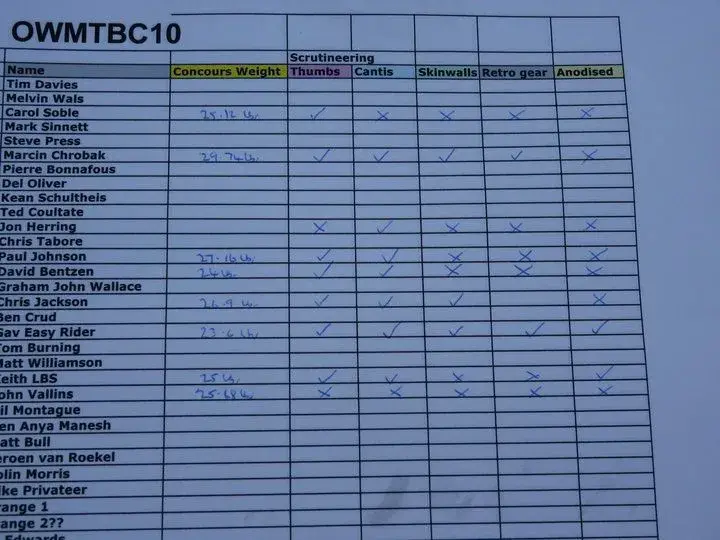 OWMTBC10
Scrutineering
Name Concours Weight Thumbs Cantis Skinwalls Retro gear Anodised
Tim Davies
Melvin Wals
Carol Soble 25.12 lb. ✓ × × × ×
Mark Sinnett
Steve Press
Marcin Chrobak 29.74 lb. ✓ ✓ ✓ ✓ ×
Pierre Bonnafous
Del Oliver
Kean Schultheis
Ted Coultate
Jon Herring × ✓ × × ×
Chris Tabore
Paul Johnson 27.16 lb ✓ ✓ × × ×
David Bentzen 24 lb. ✓ ✓ × × ×
Graham John Wallace
Chris Jackson 26.9 lb. ✓ ✓ ✓ ×
Ben Crud
Gav Easy Rider 23.6 lb ✓ ✓ ✓ ✓ ✓
Tom Burning
Matt Williamson
eith LBS 25 lb. ✓ ✓ × × ✓
ohn Vallins 25.68 lb × × × × ×
il Montague
en Anya Manesh
att Bull
eroen van Roekel
olin Morris
ike Privateer
range 1
ange 2??
Edwards